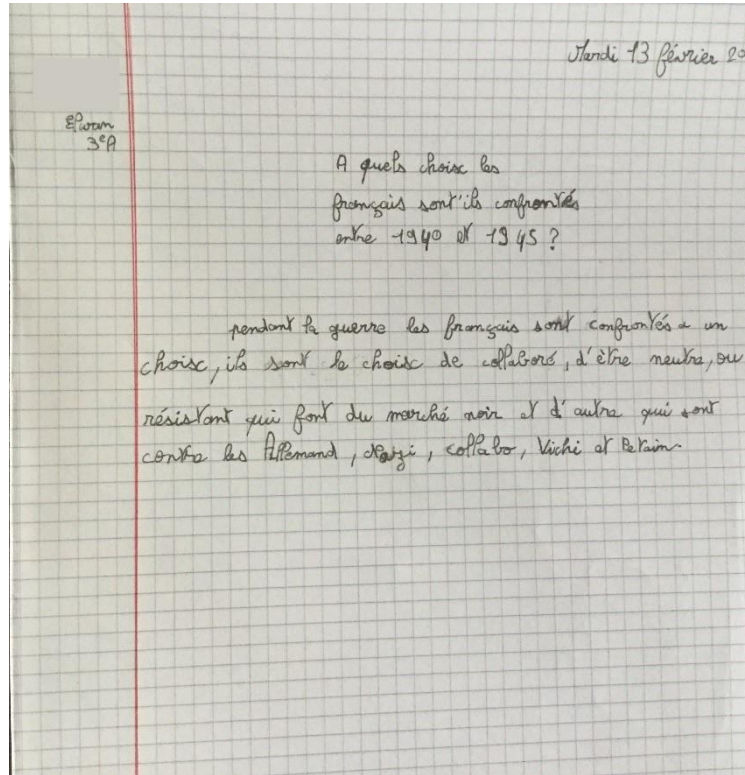 Mardi 13 février 20
Elwan
3eA
A quels choisc les
français sont'ils confrontés
entre 1940 et 1945 ?
pendant la guerre les français sont confrontés a un
choisc, ils sont le choisc de collaboré, d'être neutre, ou
résistant qui font du marché noir et d'autre qui sont
contre les Allemand, Nazi, collabo, Vichi et Petain.